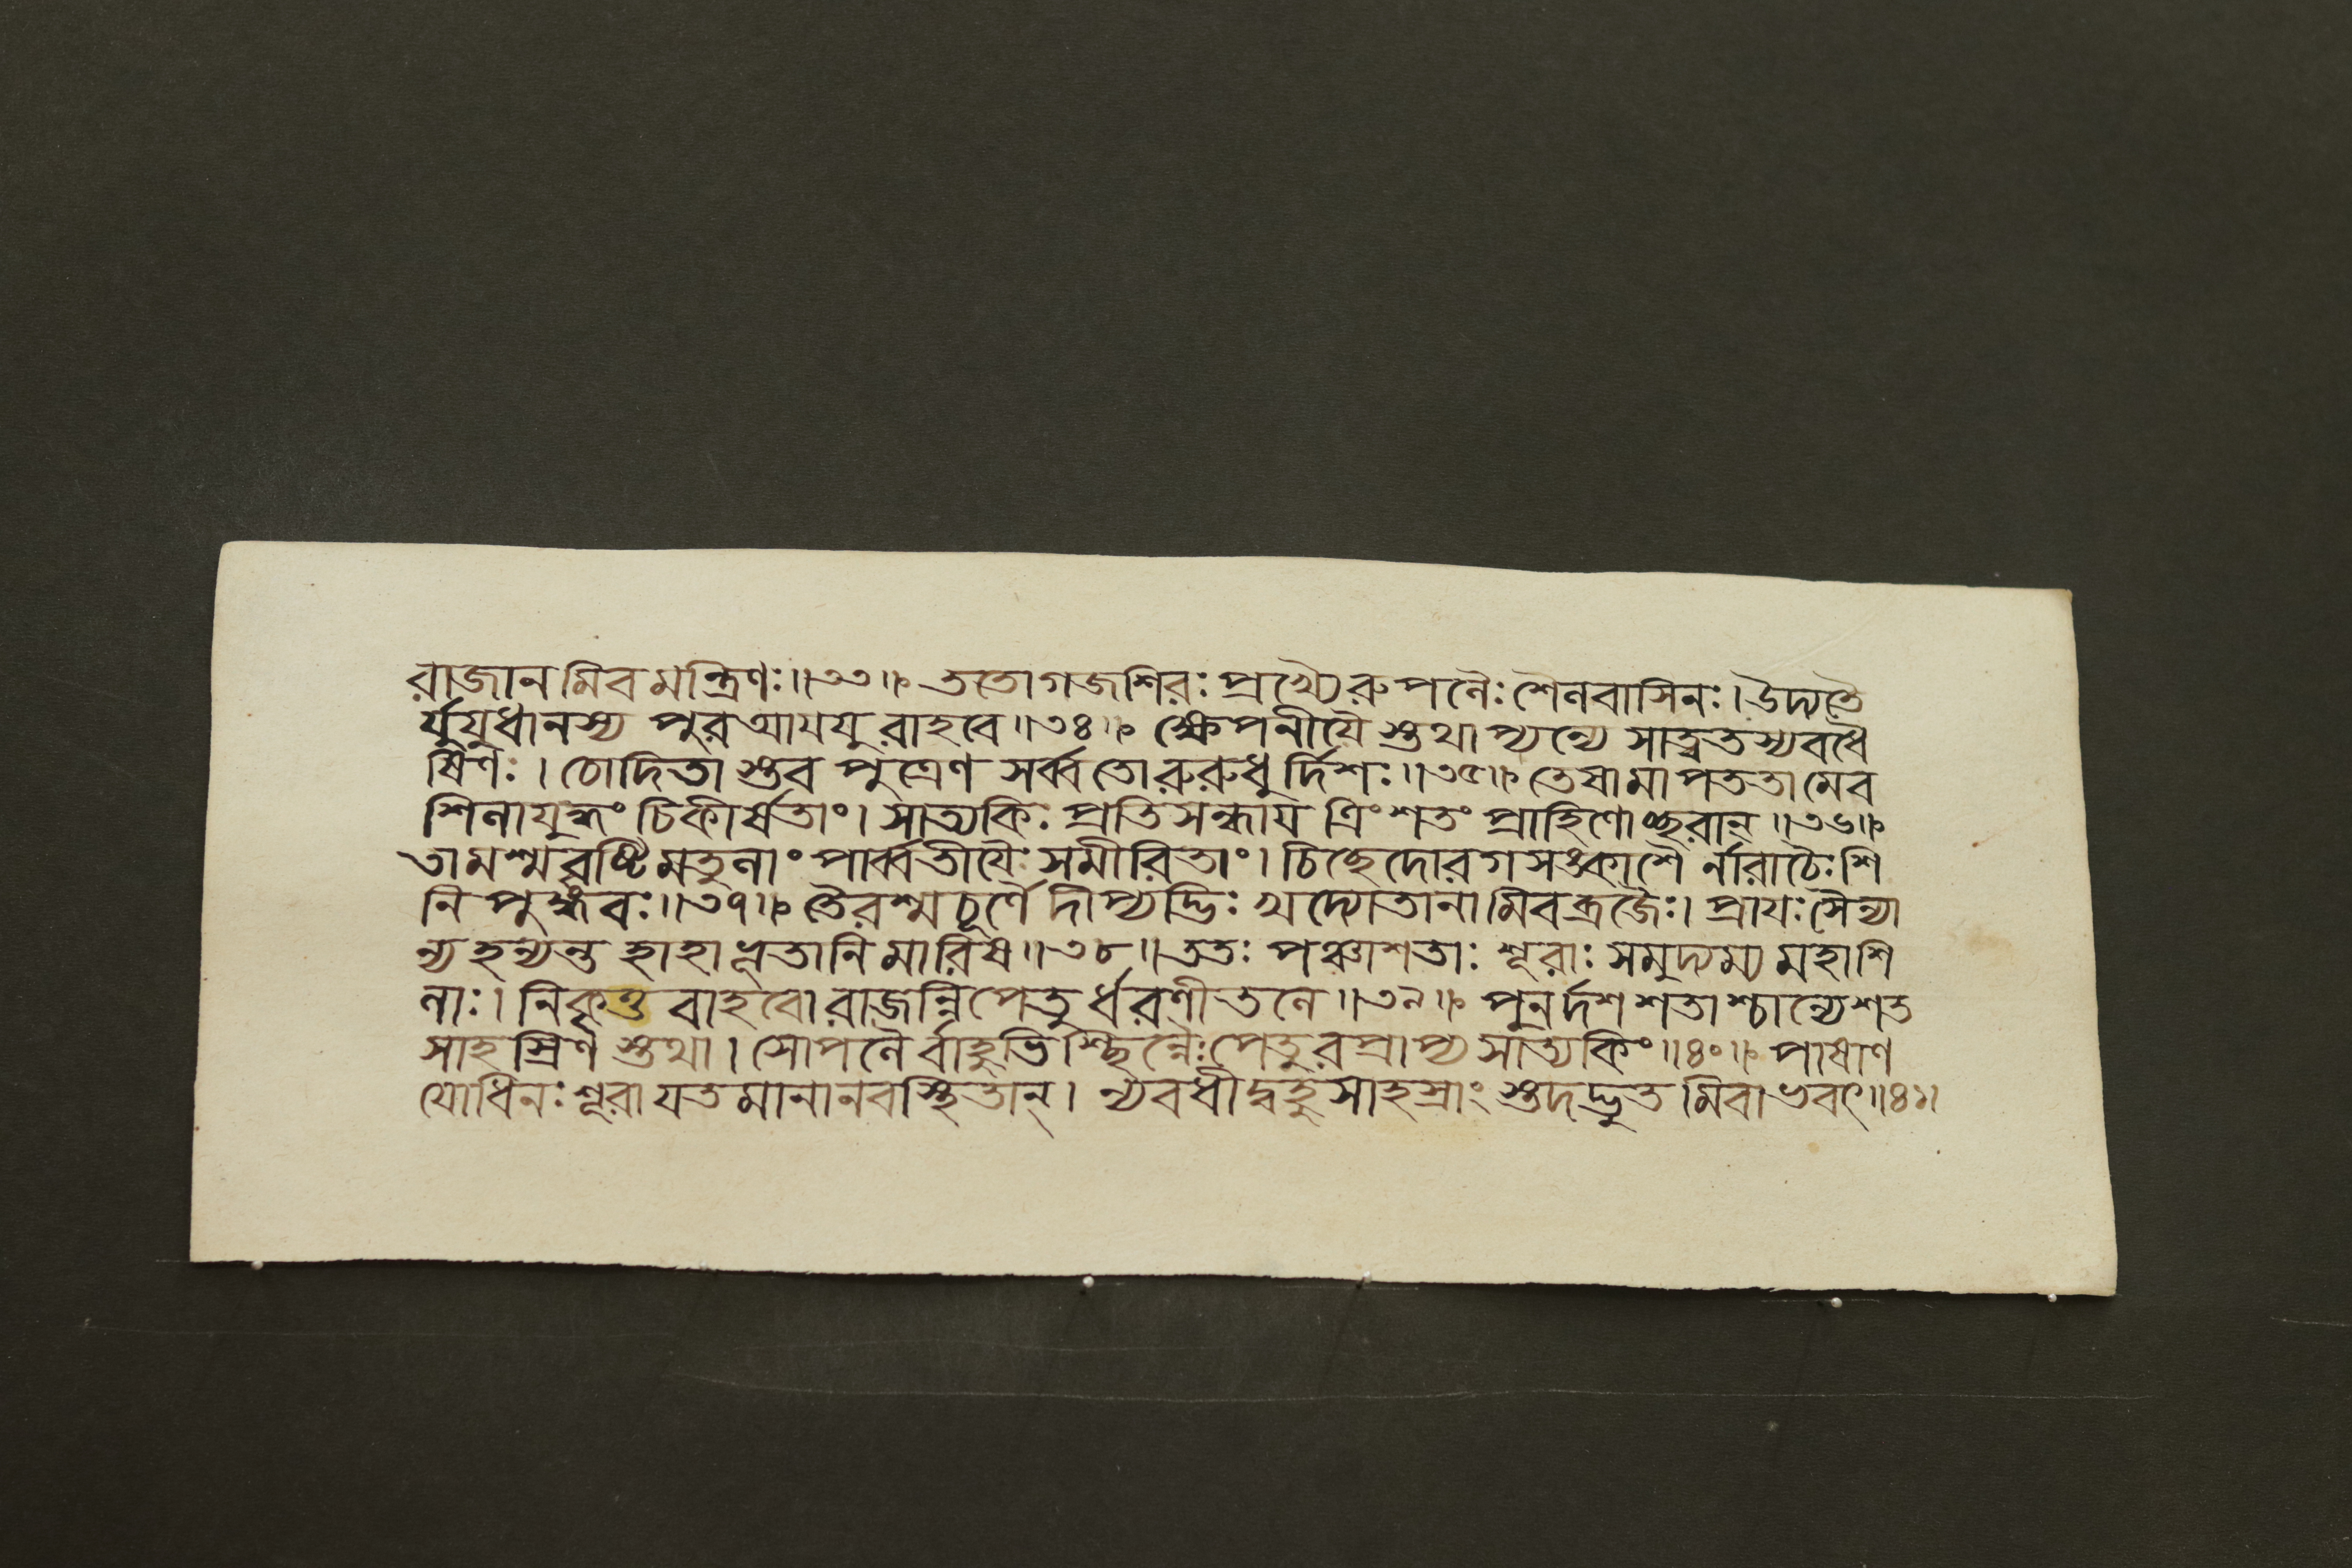 রাজানমিবমন্ত্রিণঃ॥৩৩॥ ততোগজশিরঃপ্রখ্যৈরুপলৈঃশৈলবাসিনঃ।উদ্যতৈ
র্যুযুধানস্য পুরআযযুরাহবে॥৩৪॥ ক্ষেপনীযৈস্তথাপ্যন্যে সাত্বতস্যবধৈ
ষিণঃ। চোদিতাস্তব পুত্রেণ সর্ব্বতোরুরুধুর্দিশঃ॥৩৫॥ তেষামাপততামেব
শিলাযুদ্ধং চিকীর্ষতাং। সাত্যকিঃ প্রতিসন্ধায ত্রিংশতং প্রাহিণোচ্ছরান্॥৩৬॥
তামশ্মবৃষ্টিমতুলাং পার্ব্বতীযৈঃ সমীরিতাং। চিচ্ছেদোরগসঙ্কাশৈর্নারাচৈঃশি
নিপুঙ্গবঃ॥৩৭॥ তৈরশ্মচূর্ণৈদীপ্যদ্ভিঃ খদ্যোতানামিবব্রজৈঃ। প্রাযঃসৈন্যা
ন্যহন্যন্ত হাহাভূতানিমারিষ॥৩৮॥ততঃ পঞ্চাশতাঃ শূরাঃ সমুদ্যম্য মহাশি
লাঃ। নিকৃত্তবাহবো রাজন্নিপেতুর্ধরণীতলে॥৩৯॥ পুনর্দশশতাশ্চান্যেশত
সাহস্রিণস্তথা। সোপলৈর্বাহুভিশ্ছিন্নৈঃপেতুরপ্রাপ্যসাত্যকিং॥৪০॥ পাষাণ
যোধিনঃশূরাযতমানানবস্থিতান্। ন্যবধীদ্বহুসাহস্রাংস্তদদ্ভুতমিবাভবৎ॥৪১॥